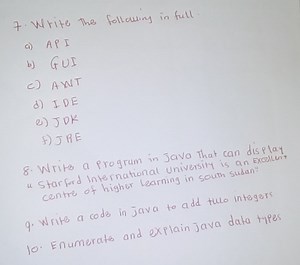 7. Write The following in full.
a) API
b) GUI
c) AWT
d) IDE
e) JDK
f) JRE
8. Write a program in java That can display
" Starford International university is an Excellent
centre of higher learning in south sudan"
9. Write a code in java to add two integers
10. Enumerate and explain java data types